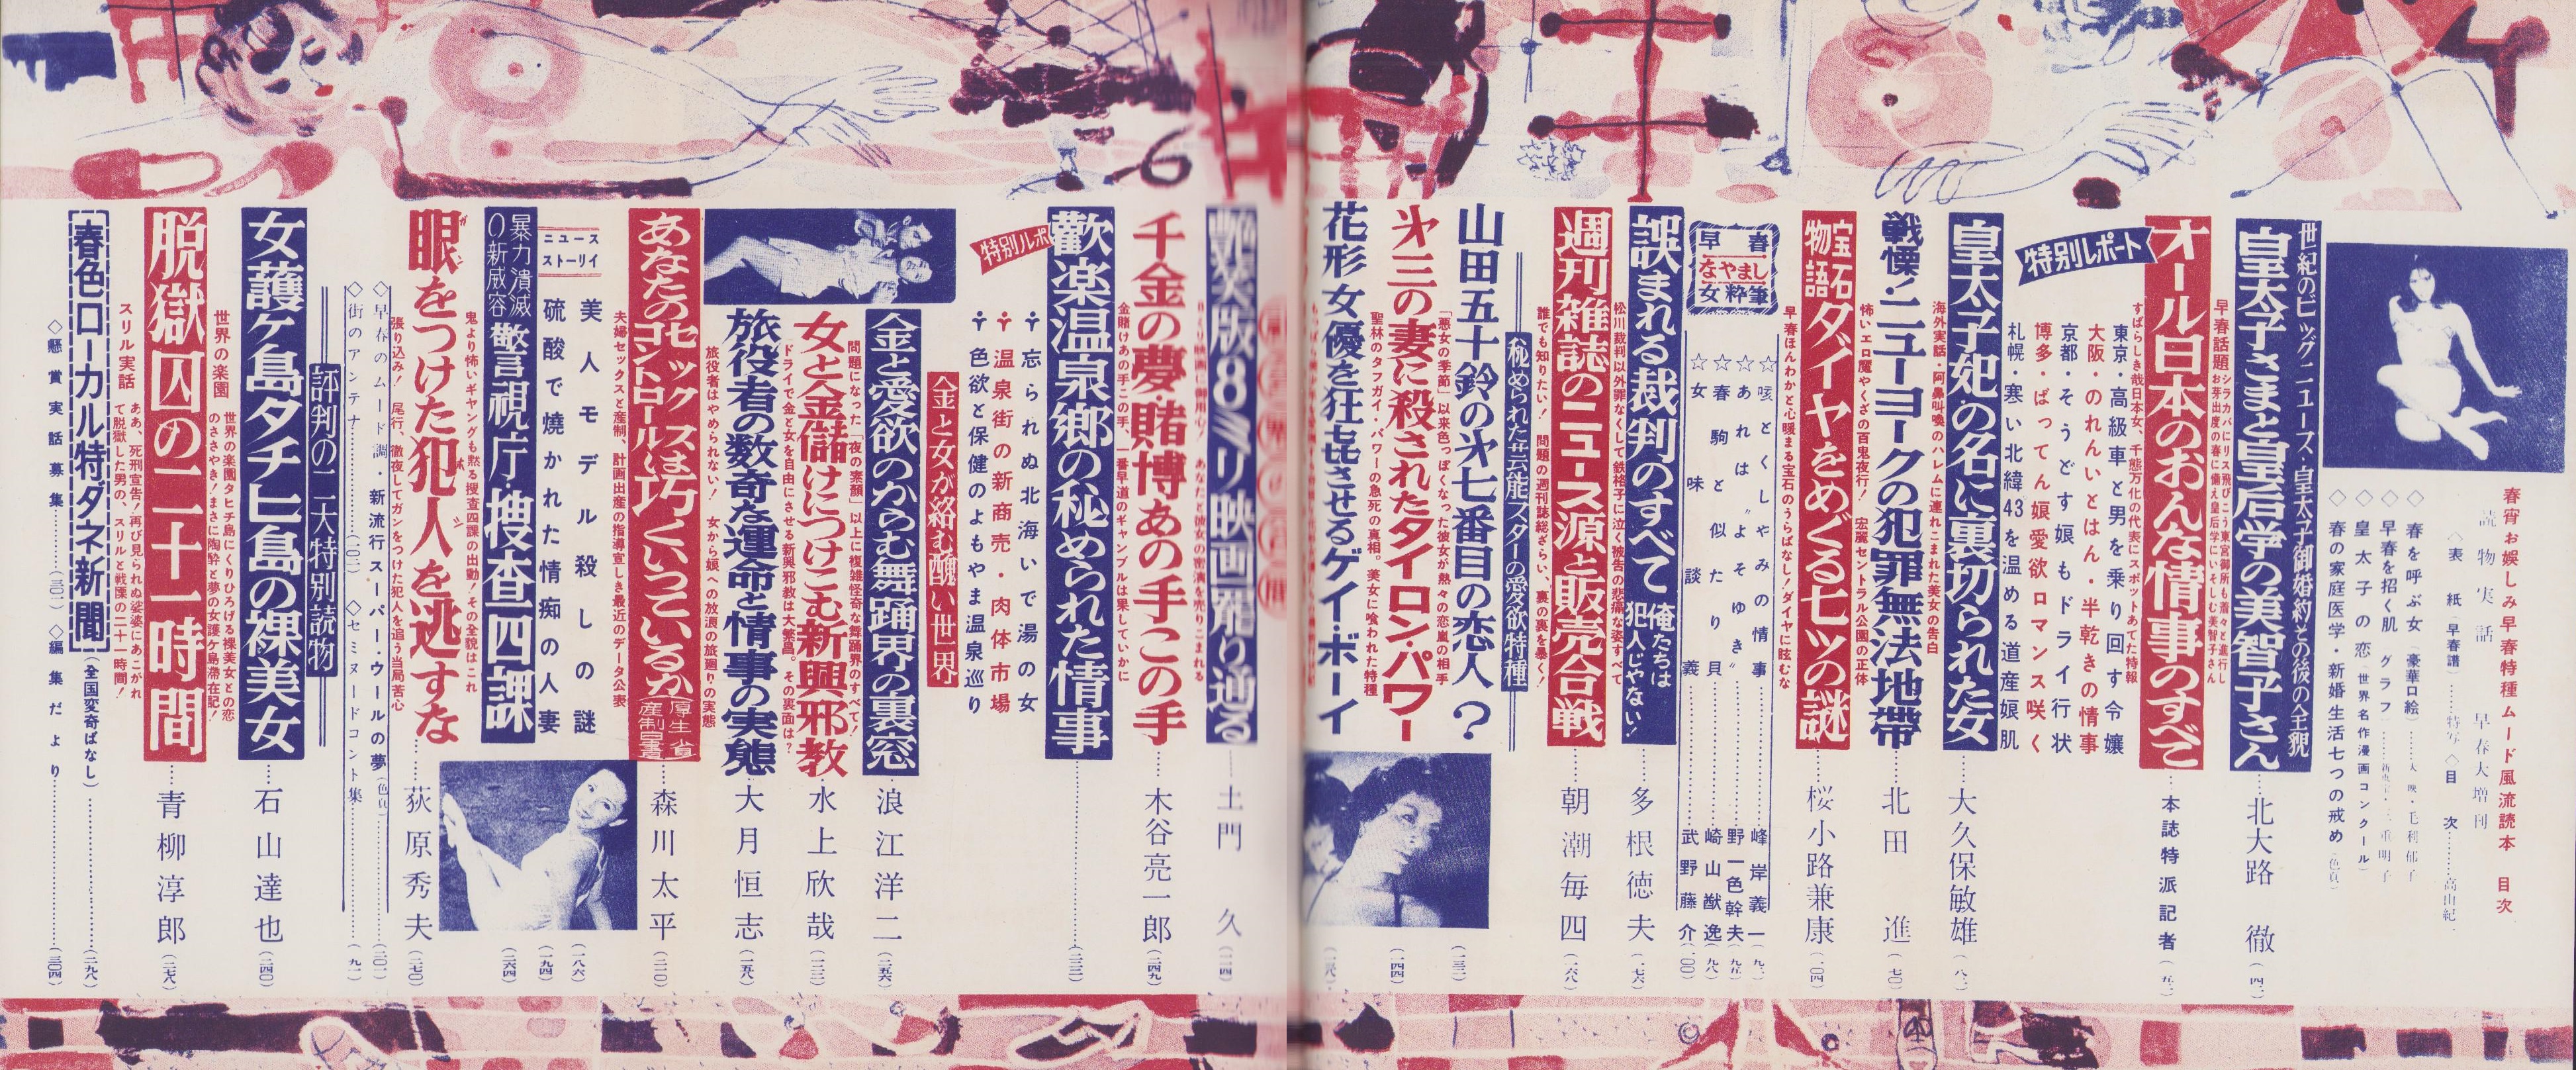 春宵お娯しみ早春特種ムード風流読本 目次
読物実話 早春大増刊
◇表紙「早春譜」……特写◇目次……高山紀
◇春を呼ぶ女(豪華口絵)……大映・毛利郁子
◇早春を招く肌 グラフ……新東宝・三重明子
◇皇太子の恋(世界名作漫画コンクール)
◇春の家庭医学・新婚生活七つの戒め(色頁)
世紀のビッグニュース・皇太子御婚約とその後の全貌
皇太子さまと皇后学の美智子さん……北大路 徹
早春話題
オール日本のおんな情事のすべて……本誌特派記者
すばらしき哉日本女、千態万化の代表にスポットあてた特報
特別レポート
東京・高級車と男を乗り回す令嬢
大阪・のれんいとはん・半乾きの情事
京都・そうどす娘もドライ行状
博多・ばってん娘愛欲ロマンス咲く
札幌・寒い北緯43を温める道産娘肌
皇太子妃の名に裏切られた女……大久保敏雄
海外実話・阿鼻叫喚のハレムに連れこまれた美女の告白
戦慄・ニューヨークの犯罪無法地帯……北田 進
怖いエロ魔やくざの百鬼夜行! 宏麗セントラル公園の正体
宝石物語 ダイヤをめぐる七ツの謎……桜小路兼康
早春ほんわかと心暖まる宝石のうらばなし!ダイヤに眩むな
早春なやまし女粋筆
☆咳とくしゃみの情事……峰岸義一
☆あれは〝よそゆき〟……野一色幹夫
☆春駒と似たり貝……崎山猷逸
☆女味談義……武野藤介
誤まれる裁判のすべて 俺たちは犯人じゃない!……多根徳夫
松川裁判以外罪なくして鉄格子に泣く被告の悲痛な姿すべて
週刊雑誌のニュース源と販売合戦……朝潮毎四
誰でも知りたい! 問題の週刊誌総ざらい、裏の裏を暴く!
秘められた芸能スターの愛欲特種
山田五十鈴の㐧七番目の恋人?
「悪女の季節」以来色っぽくなった彼女が熱々の恋嵐の相手
㐧三の妻に殺されたタイロン・パワー
聖林のタフガイ・パワーの急死の真相。美女に喰われた特種
花形女優を狂喜させるゲイ・ボーイ
艶笑版8ミリ映画罷り通る……土門 久
千金の夢・賭博あの手この手……木谷亮一郎
金賭けあの手この手、一番早道のギャンブルは果していかに
特別ルポ
歓楽温泉郷の秘められた情事
忘られぬ北海いで湯の女
温泉街の新商売・肉体市場
色欲と保健のよもやま温泉巡り
金と女が絡む醜い世界
金と愛欲のからむ舞踊界の裏窓……浪江洋二
問題になった「夜の素顔」以上に複雑怪奇な舞踊界のすべて!
女と金儲けにつけこむ新興邪教……水上欣哉
ドライで金と女を自由にさせる新興邪教は大繁昌。その裏面は?
旅役者の数奇な運命と情事の実態……大月恒志
旅役者はやめられない! 女から嬢への放浪の旅廻りの実態
あなたのセックスは巧くいっているか 厚生省 産制白書……森川太平
夫婦セックスと産制、計画出産の指導宣しき最近のデータ公表
ニュースストーリイ
美人モデル殺しの謎
硫酸で焼かれた情痴の人妻
暴力潰滅の新威容 警視庁・捜査四課
鬼より怖いギャングも黙る捜査四課の出動!その全貌はこれ
眼をつけた犯人を逃すな……荻原秀夫
張り込み! 尾行、徹夜してガンをつけた犯人を追う当局苦心
◇早春のムード調・新流行スーパー・ウールの夢(色頁)
◇街のアンテナ……◇セミヌードコント集……
評判の二大特別読物
女護ケ島タチヒ島の裸美女……石山達也
世界の楽園 世界の楽園タヒチ島にくりひろげる裸美女との恋のささやき!まさに陶酔と夢の女護ケ島滞在記!
脱獄囚の二十一時間……青柳淳郎
スリル実話 ああ、死刑宣告!再び見られぬ娑婆にあこがれて脱獄した男の、スリルと戦慄の二十一時間!
春色ローカル特ダネ新聞(全国変奇ばなし)……(二九八)
◇懸賞実話募集……(三〇一)◇編集だより……(三〇四)